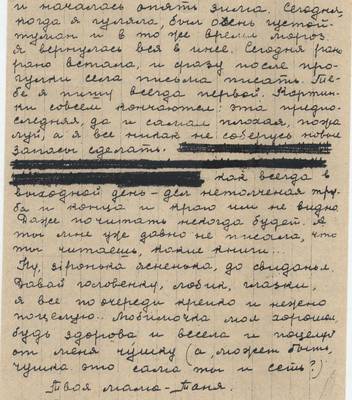 и началась опять зима. Сегодня,
когда я гуляла, был очень густой
туман и в то же время мороз.
Я вернулась вся в инее. Сегодня рано
рано встала, и сразу после про-
гулки села письма писать. Те-
бе я пишу всегда первой. Картин-
ки совсем кончаются: эта предпо-
следняя, да и самая плохая, пожа
луй, а я все никак не соберусь новые
запасы сделать.
как всегда в
выходной день – дел непочатая тру-
ба конца и краю им не видно
Даже почитать некогда будет. А
ты мне уже давно не писала, что
ты читаешь, какие книги...
Ну, зіронька ясненька, до свиданья.
Давай головенку, лобик, глазки,
я все по очереди крепко и нежно
поцелую. Любимочка моя хорошая,
будь здорова и весела и поцелуй
от меня чушку (а, может быть,
чушка это сама ты и есть?)
Твоя мама – Таня.